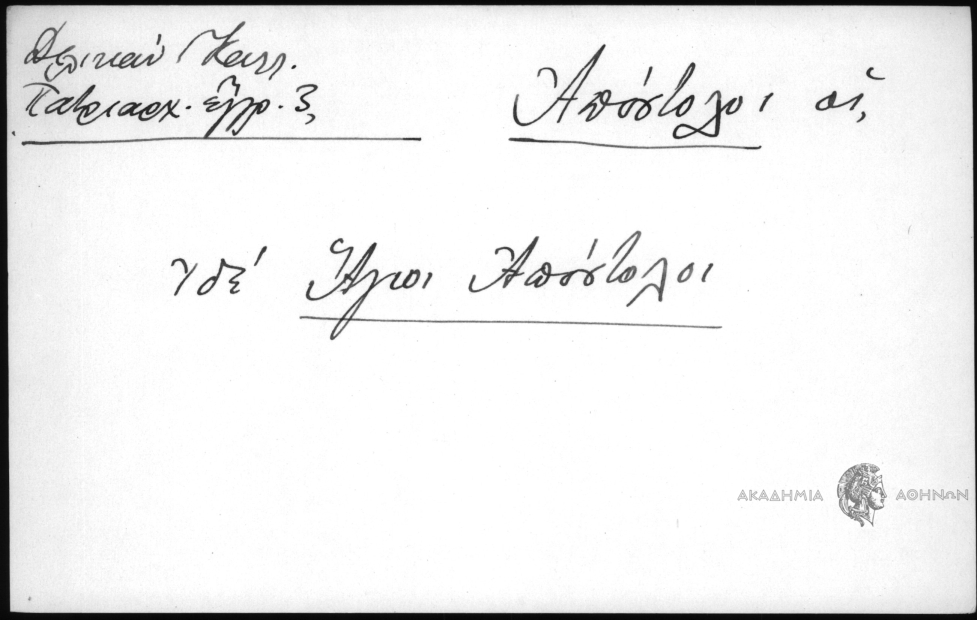 Δελικάν Καλλ.
Πατριαρχ. ἔγγρ. 3,
Ἀπόστολοι οἱ,
ἰδέ Ἅγιοι Ἀπόστολοι
ΑΚΑΔΗΜΙΑ ΑΘΗΝΩΝ